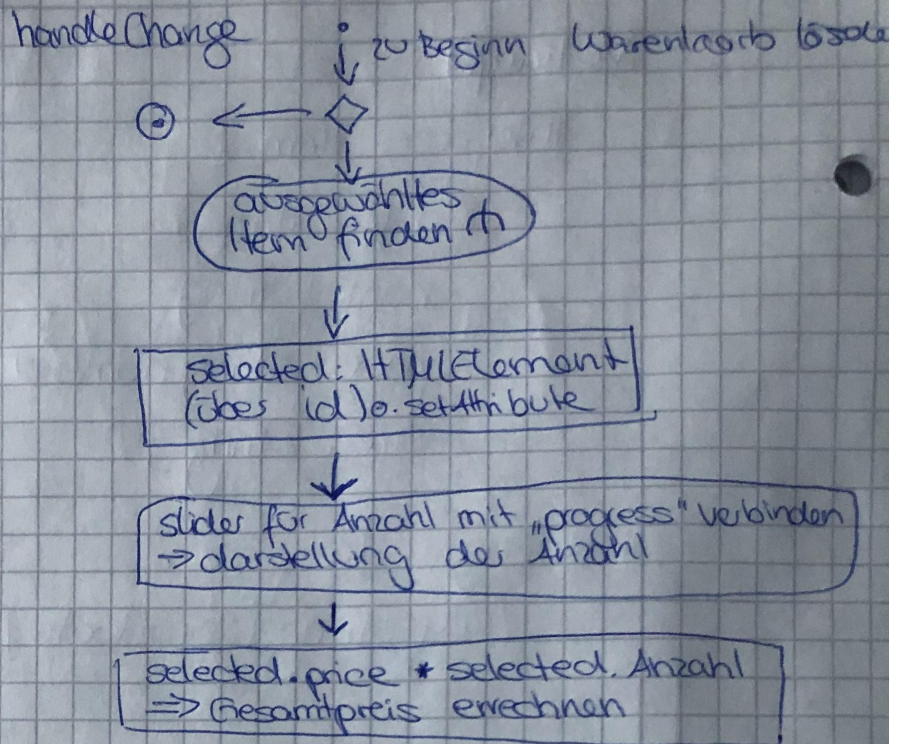 handleChange
zu Beginn Warenkorb lösche
ausgewähltes
Item finden
selected: HTMLElement
(über id) o. setAttribute
slider für Anzahl mit „progress" verbinden
=> darstellung der Anzahl
selected.price * selected.Anzahl
=> Gesamtpreis errechnen